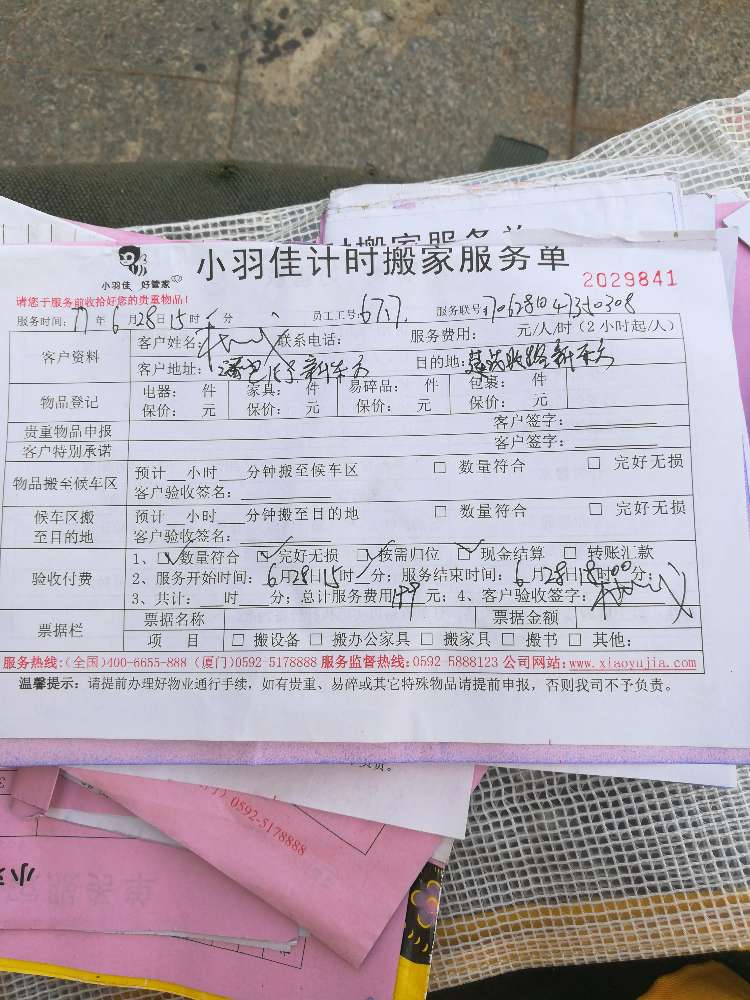 时搬家服务单
小羽佳计时搬家服务单
小羽佳 好管家
2029841
请您于服务前收拾好您的贵重物品!
服务时间: 17 年 6 月 28 日 15 时 分 员工工号: 6717 服务联号:
客户资料 客户姓名: 联系电话: 服务费用: 元/人/时(2小时起/人)
客户地址: 目的地:
物品登记 电器: 件 家具: 件 易碎品: 件 包裹: 件
保价: 元 保价: 元 保价: 元 保价: 元
贵重物品申报 客户签字:
客户特别承诺 客户签字:
物品搬至候车区 预计 小时 分钟搬至候车区 □ 数量符合 □ 完好无损
客户验收签名:
候车区搬至目的地 预计 小时 分钟搬至目的地 □ 数量符合 □ 完好无损
客户验收签名:
验收付费 1、☑数量符合 ☑完好无损 ☑按需归位 ☑现金结算 □ 转账汇款
2、服务开始时间: 6月28日15时 分; 服务结束时间: 6月28日18时00分;
3、共计: 时 分; 总计服务费用 元; 4、客户验收签字:
票据栏 票据名称 票据金额
项 目 □ 搬设备 □ 搬办公家具 □ 搬家具 □ 搬书 □ 其他:
服务热线:(全国)400-6655-888 (厦门)0592-5178888 服务监督热线:0592 5888123 公司网站:www.xiaoyujia.com
温馨提示: 请提前办理好物业通行手续,如有贵重、易碎或其它特殊物品请提前申报,否则我司不予负责。
门) 0592-5178888
服务单
小